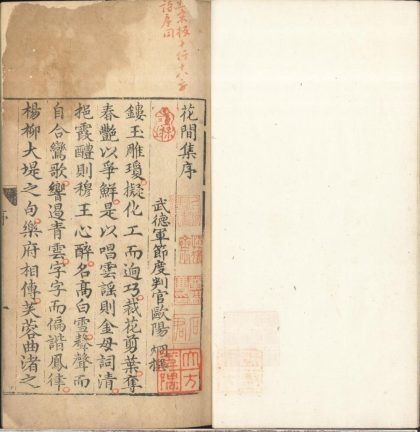 花間集序
武德軍節度判官歐陽 炯撰
鏤玉雕瓊擬化工而逈巧裁花剪葉奪
春艷以爭鮮是以唱雲謡則金母詞清
挹霞醴則穆王心醉名髙白雪聲聲而
自合鸞歌響遏青雲字字而偏諧鳳律
楊柳大堤之句樂府相傳芙蓉曲渚之
十行十八字
序同
大方